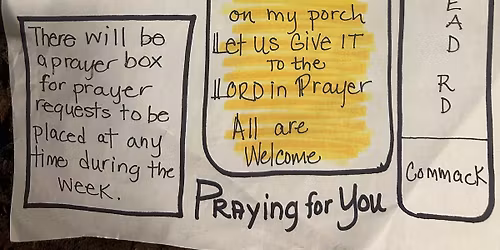 There will be
a prayer box
for prayer
requests to be
placed at any
time during the
week.
on my porch
Let us Give IT
To the
LORD in Prayer
All are
Welcome
PRAYing for You
EAD
RD
Commack